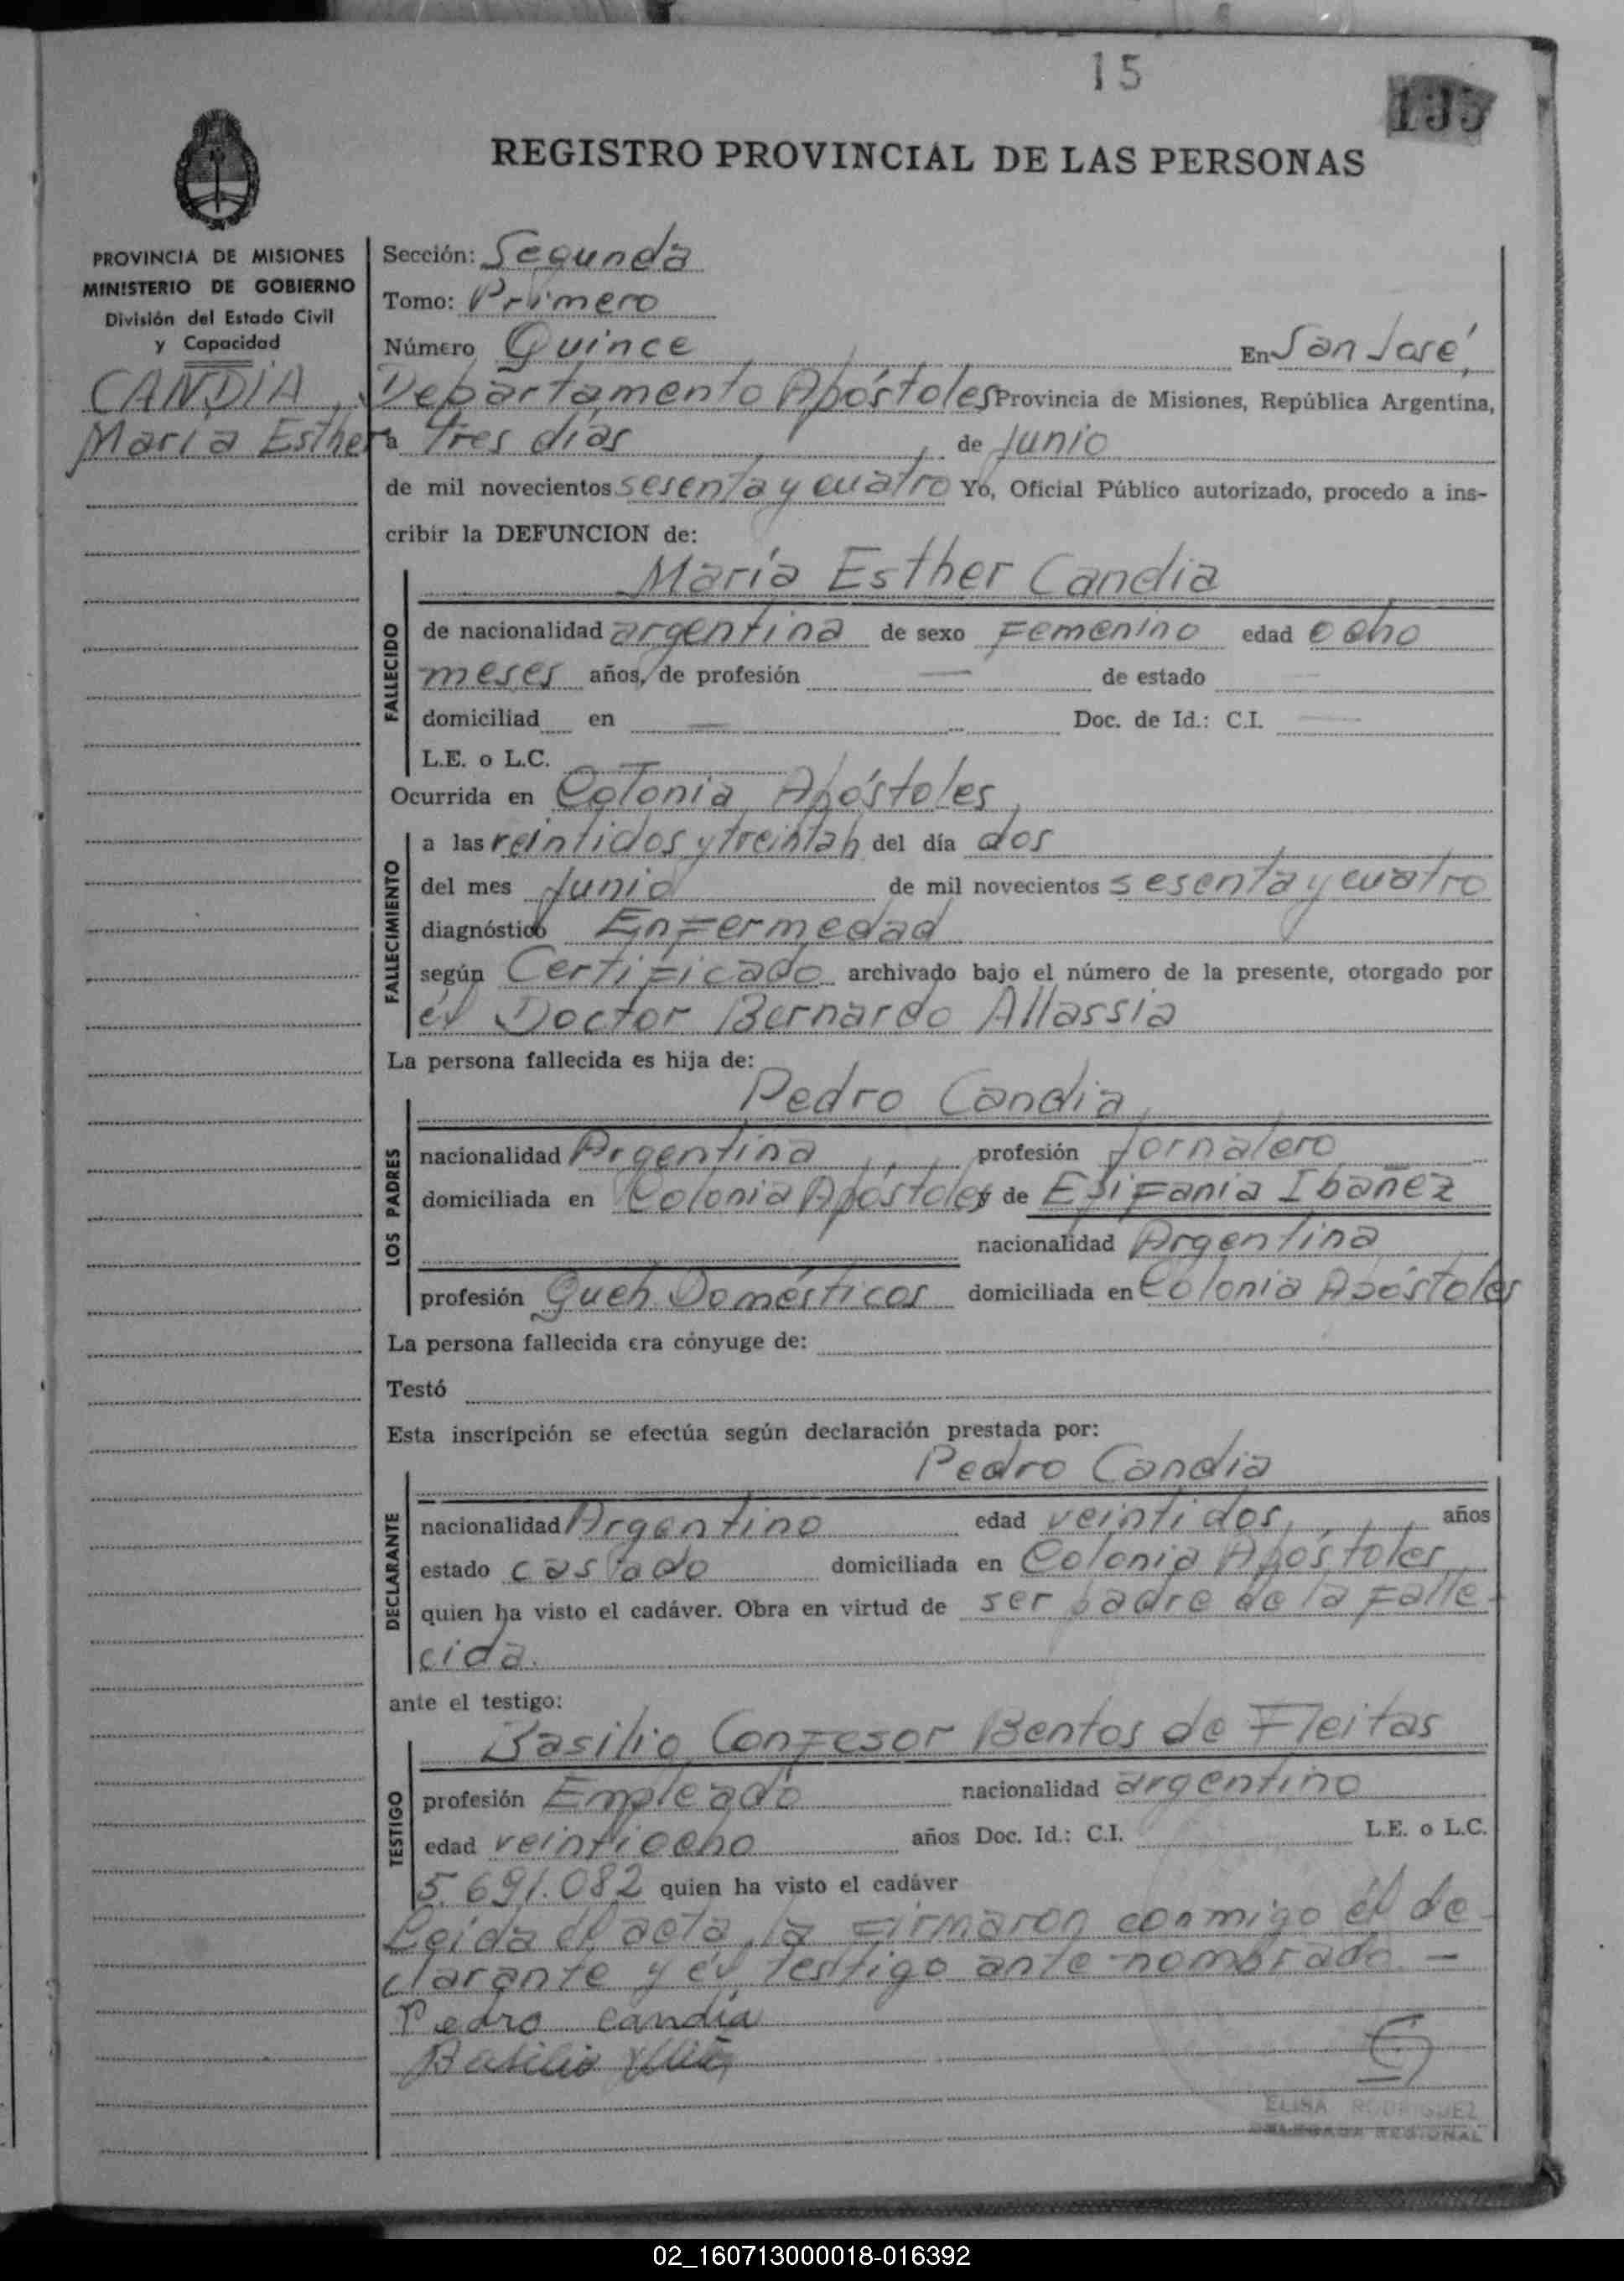 15
135
REGISTRO PROVINCIAL DE LAS PERSONAS
PROVINCIA DE MISIONES
MINISTERIO DE GOBIERNO
División del Estado Civil
y Capacidad
CANDIA,
María Esther
Sección: Segunda
Tomo: Primero
Número Quince En San José,
Departamento Apóstoles Provincia de Misiones, República Argentina,
a tres días de Junio
de mil novecientos sesenta y cuatro Yo, Oficial Público autorizado, procedo a ins-
cribir la DEFUNCION de:
María Esther Candia
FALLECIDO
de nacionalidad argentina de sexo Femenino edad ocho
meses años, de profesión — de estado
domiciliad en — Doc. de Id.: C.I. —
L.E. o L.C.
Ocurrida en Colonia Apóstoles,
FALLECIMIENTO
a las veintidos y treinta h del día dos
del mes Junio de mil novecientos sesenta y cuatro
diagnóstico Enfermedad
según Certificado archivado bajo el número de la presente, otorgado por
el Doctor Bernardo Allassia
La persona fallecida es hija de:
Pedro Candia,
LOS PADRES
nacionalidad Argentina profesión Jornalero
domiciliada en Colonia Apóstoles y de Epifania Ibañez
nacionalidad Argentina
profesión Queh. Domésticos domiciliada en Colonia Apóstoles
La persona fallecida era cónyuge de:
Testó
Esta inscripción se efectúa según declaración prestada por:
Pedro Candia
DECLARANTE
nacionalidad Argentino edad veintidos, años
estado casado domiciliada en Colonia Apóstoles
quien ha visto el cadáver. Obra en virtud de ser padre de la falle-
cida.
ante el testigo:
Basilio Confesor Bentos de Fleitas
TESTIGO
profesión Empleado nacionalidad argentino
edad veintiocho años Doc. Id.: C.I. L.E. o L.C.
5.691.082 quien ha visto el cadáver
Leída el acta, la firmaron conmigo el de-
clarante y el testigo ante nombrado. —
Pedro candia
Basilio
ELISA RODRIGUEZ
DELEGADA REGIONAL
02_160713000018-016392